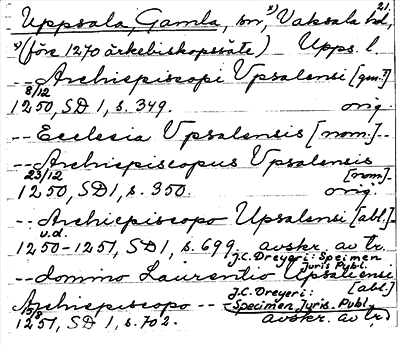 21.
Uppsala, Gamla, sn, ¹⁾ Vaksala hd,
¹⁾(före 1270 ärkebiskopssäte) Upps. l.
-- Archiepiscopi Vpsalensi [gen.]
8/12
1250, SD 1, s. 349. orig.
-- Ecclesia Vpsalensis [nom.]--
-- Archiepiscopus Vpsalensis
23/12 [nom.]
1250, SD 1, s. 350. orig.
-- Archiepiscopo Upsalensi [abl.]
u.d.
1250-1251, SD 1, s. 699. avskr. av tr.
J.C. Dreyeri: Specimen
Juris Publ.
-- domino Laurentio Upsaliensi
[abl.]
Archiepiscopo -- J.C. Dreyeri:
Specimen Juris. Publ.
15/8
1251, SD 1, s. 702. avskr. av tr.